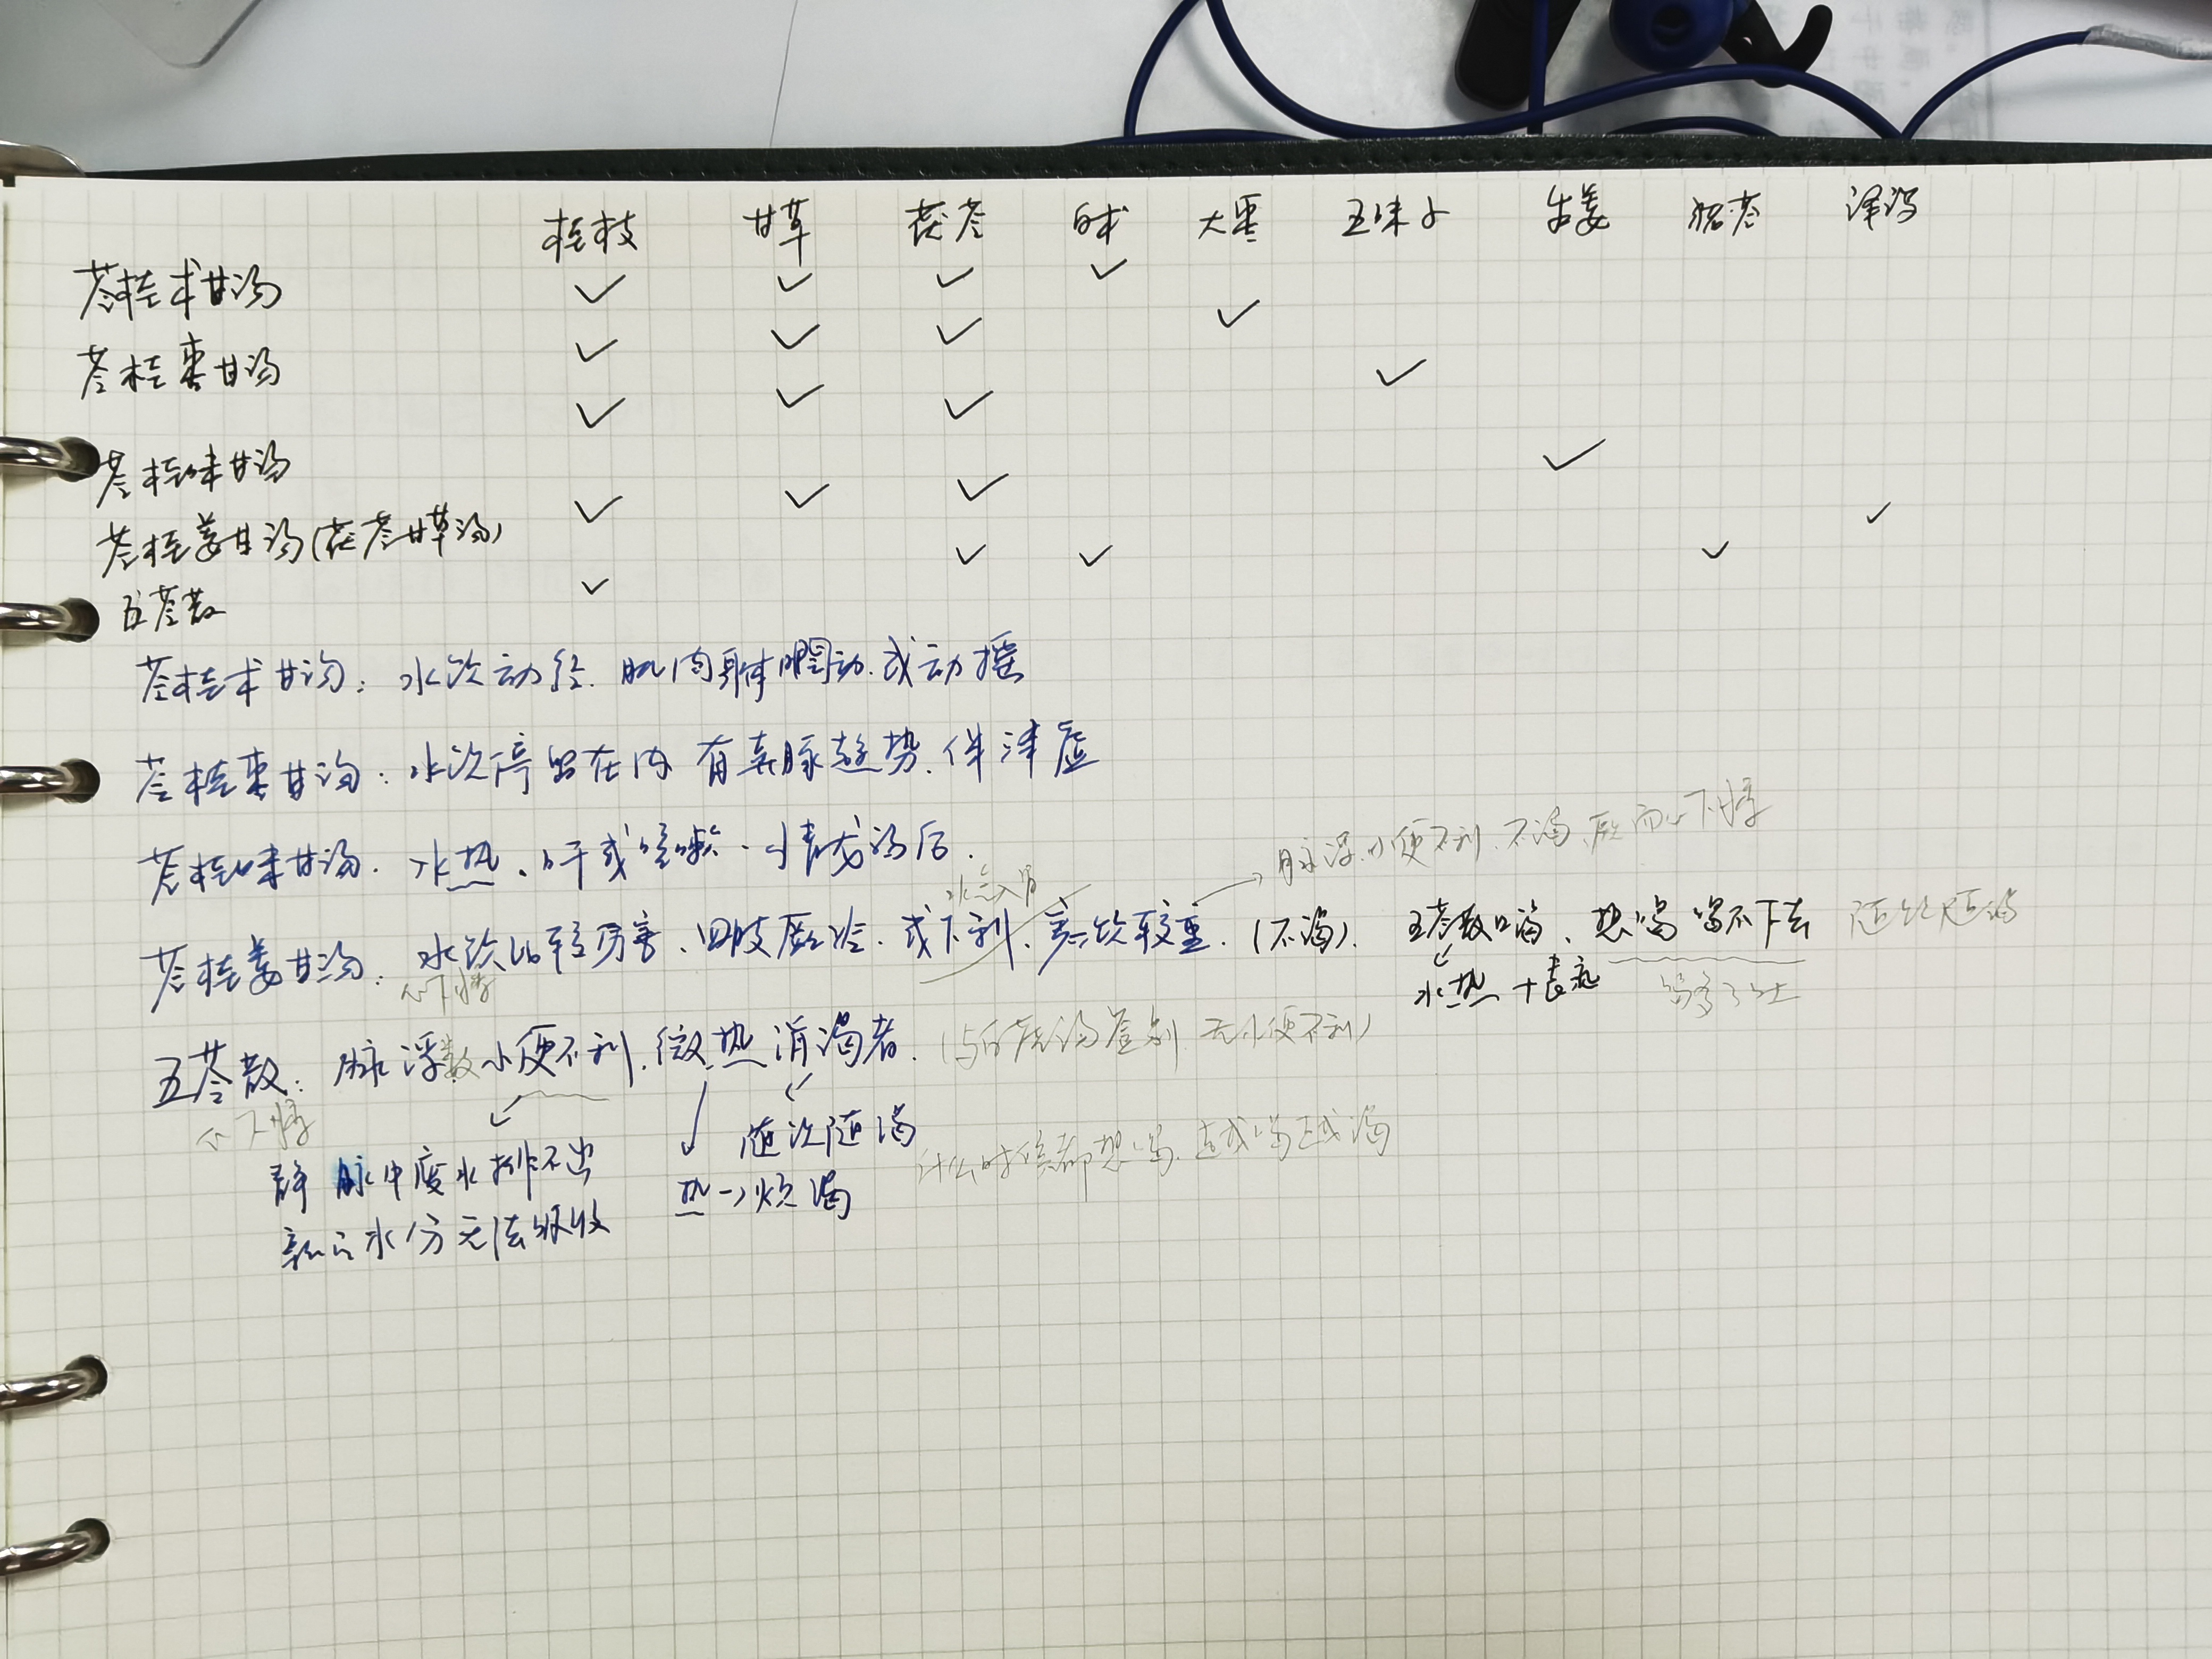 桂枝 甘草 茯苓 白术 大枣 五味子 生姜 猪苓 泽泻
苓桂术甘汤 ✓ ✓ ✓ ✓
苓桂枣甘汤 ✓ ✓ ✓ ✓
苓桂味甘汤 ✓ ✓ ✓ ✓
苓桂姜甘汤(茯苓甘草汤) ✓ ✓ ✓ ✓
五苓散 ✓ ✓ ✓ ✓ ✓
苓桂术甘汤: 水饮动经. 肌肉身体瞤动. 或动摇
苓桂枣甘汤: 水饮停留在内 有奔豚趋势. 伴津虚
脉浮. 小便不利. 不渴. 厥而心下悸
苓桂味甘汤. 水热. 口干或咳嗽. 小青龙汤后.
水入胃
苓桂姜甘汤. 水饮比较厉害、四肢厥冷. 或下利. 寒饮较重. (不渴). 五苓散口渴、想喝喝不下去 随饮随渴
心下悸
水热+表
喝多了吐
五苓散: 脉浮数 小便不利. 微热消渴者. (与白虎汤鉴别. 无小便不利)
心下悸
随饮随渴
什么时候都想喝. 越喝越渴
静脉中废水排不出
热→烦渴
新的水分无法吸收